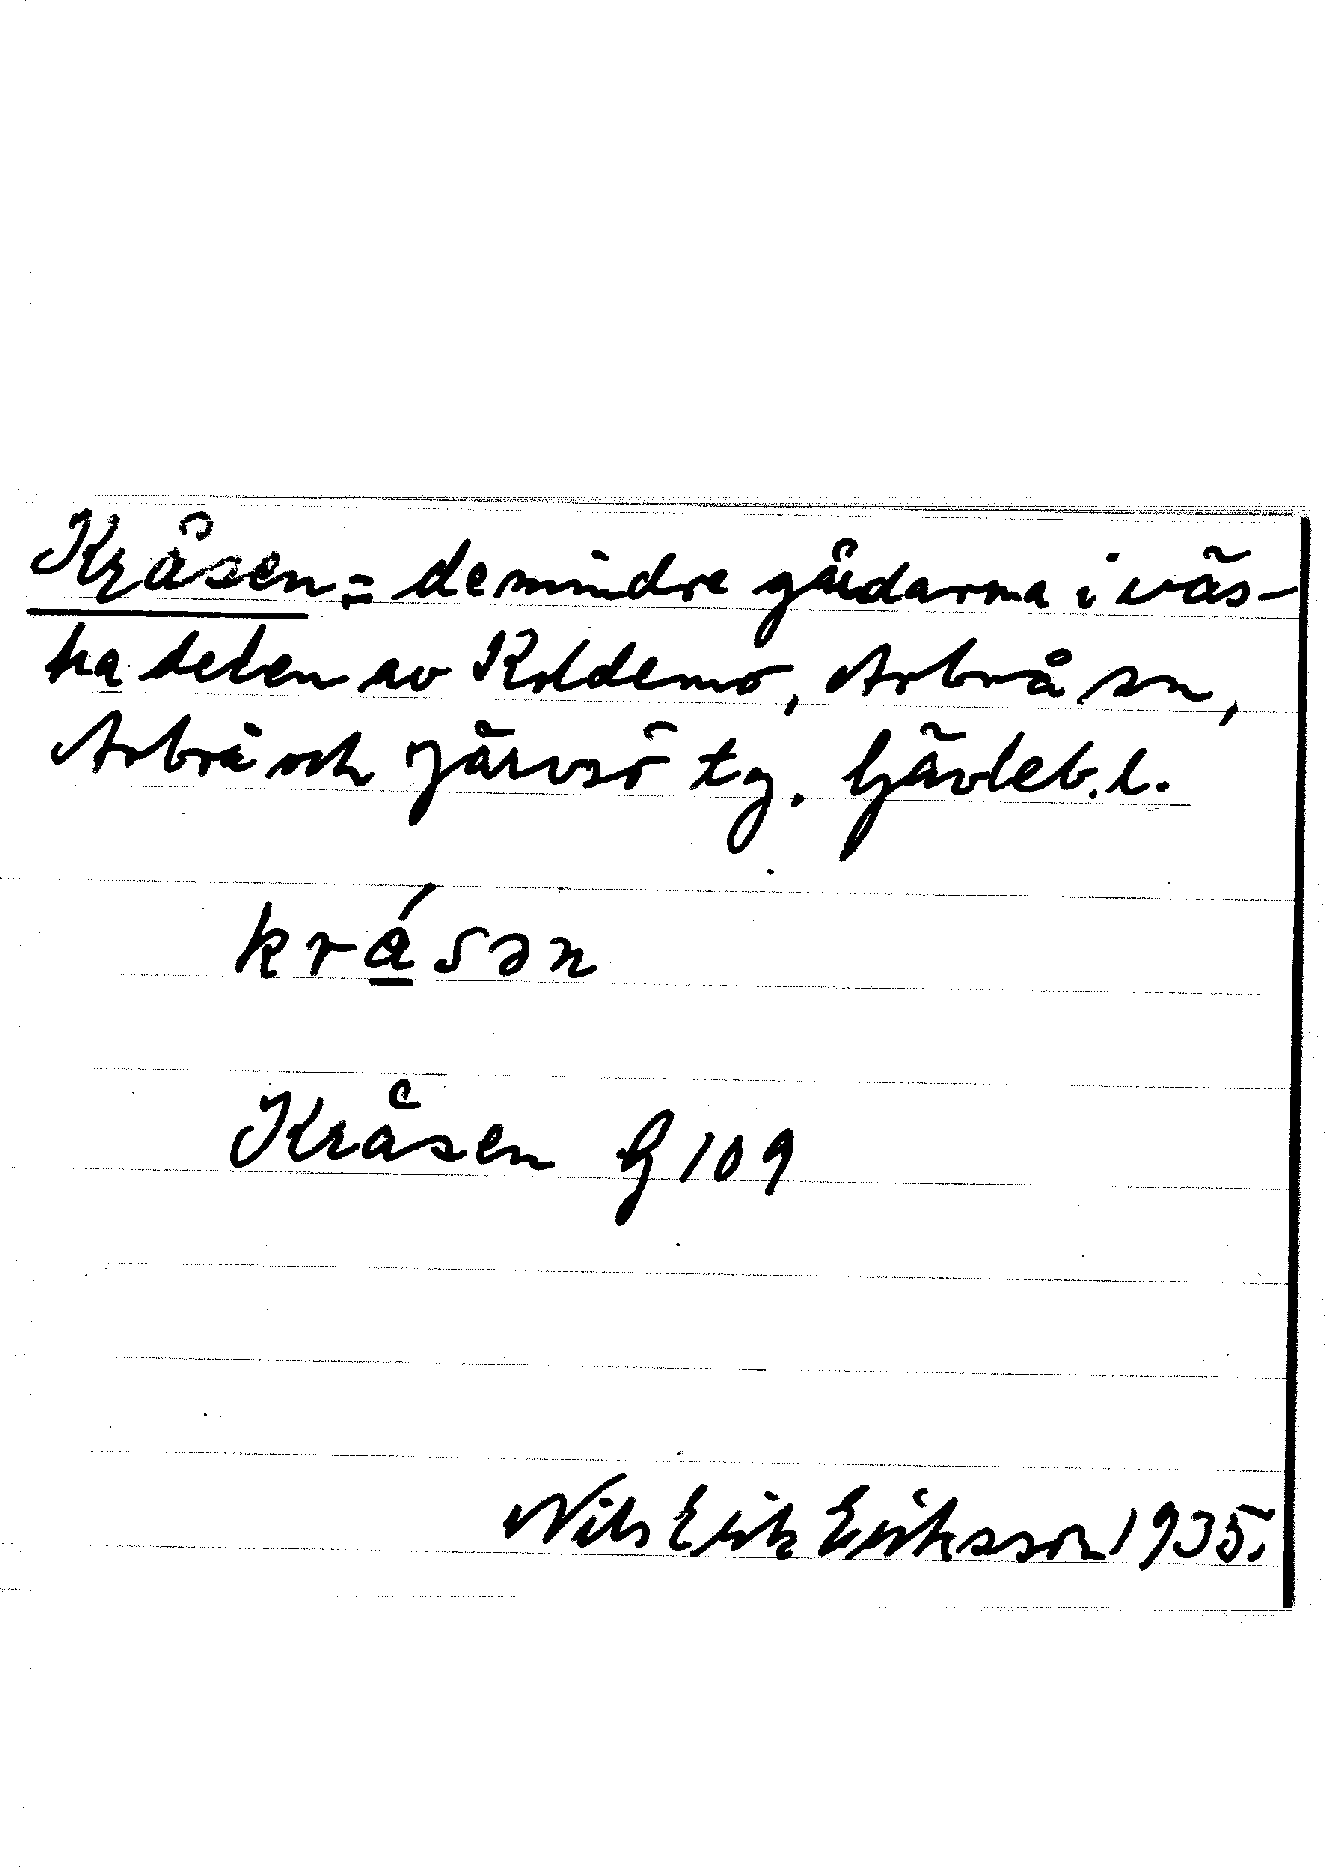 Kråsen = de mindre gårdarna i väs-
tra delen av Koldemo, Arbrå sn,
Arbrå och Järvsö tg. Gävleb. l.
krá̱sən
Kråsen G 109
Nils Erik Eriksson 1935.